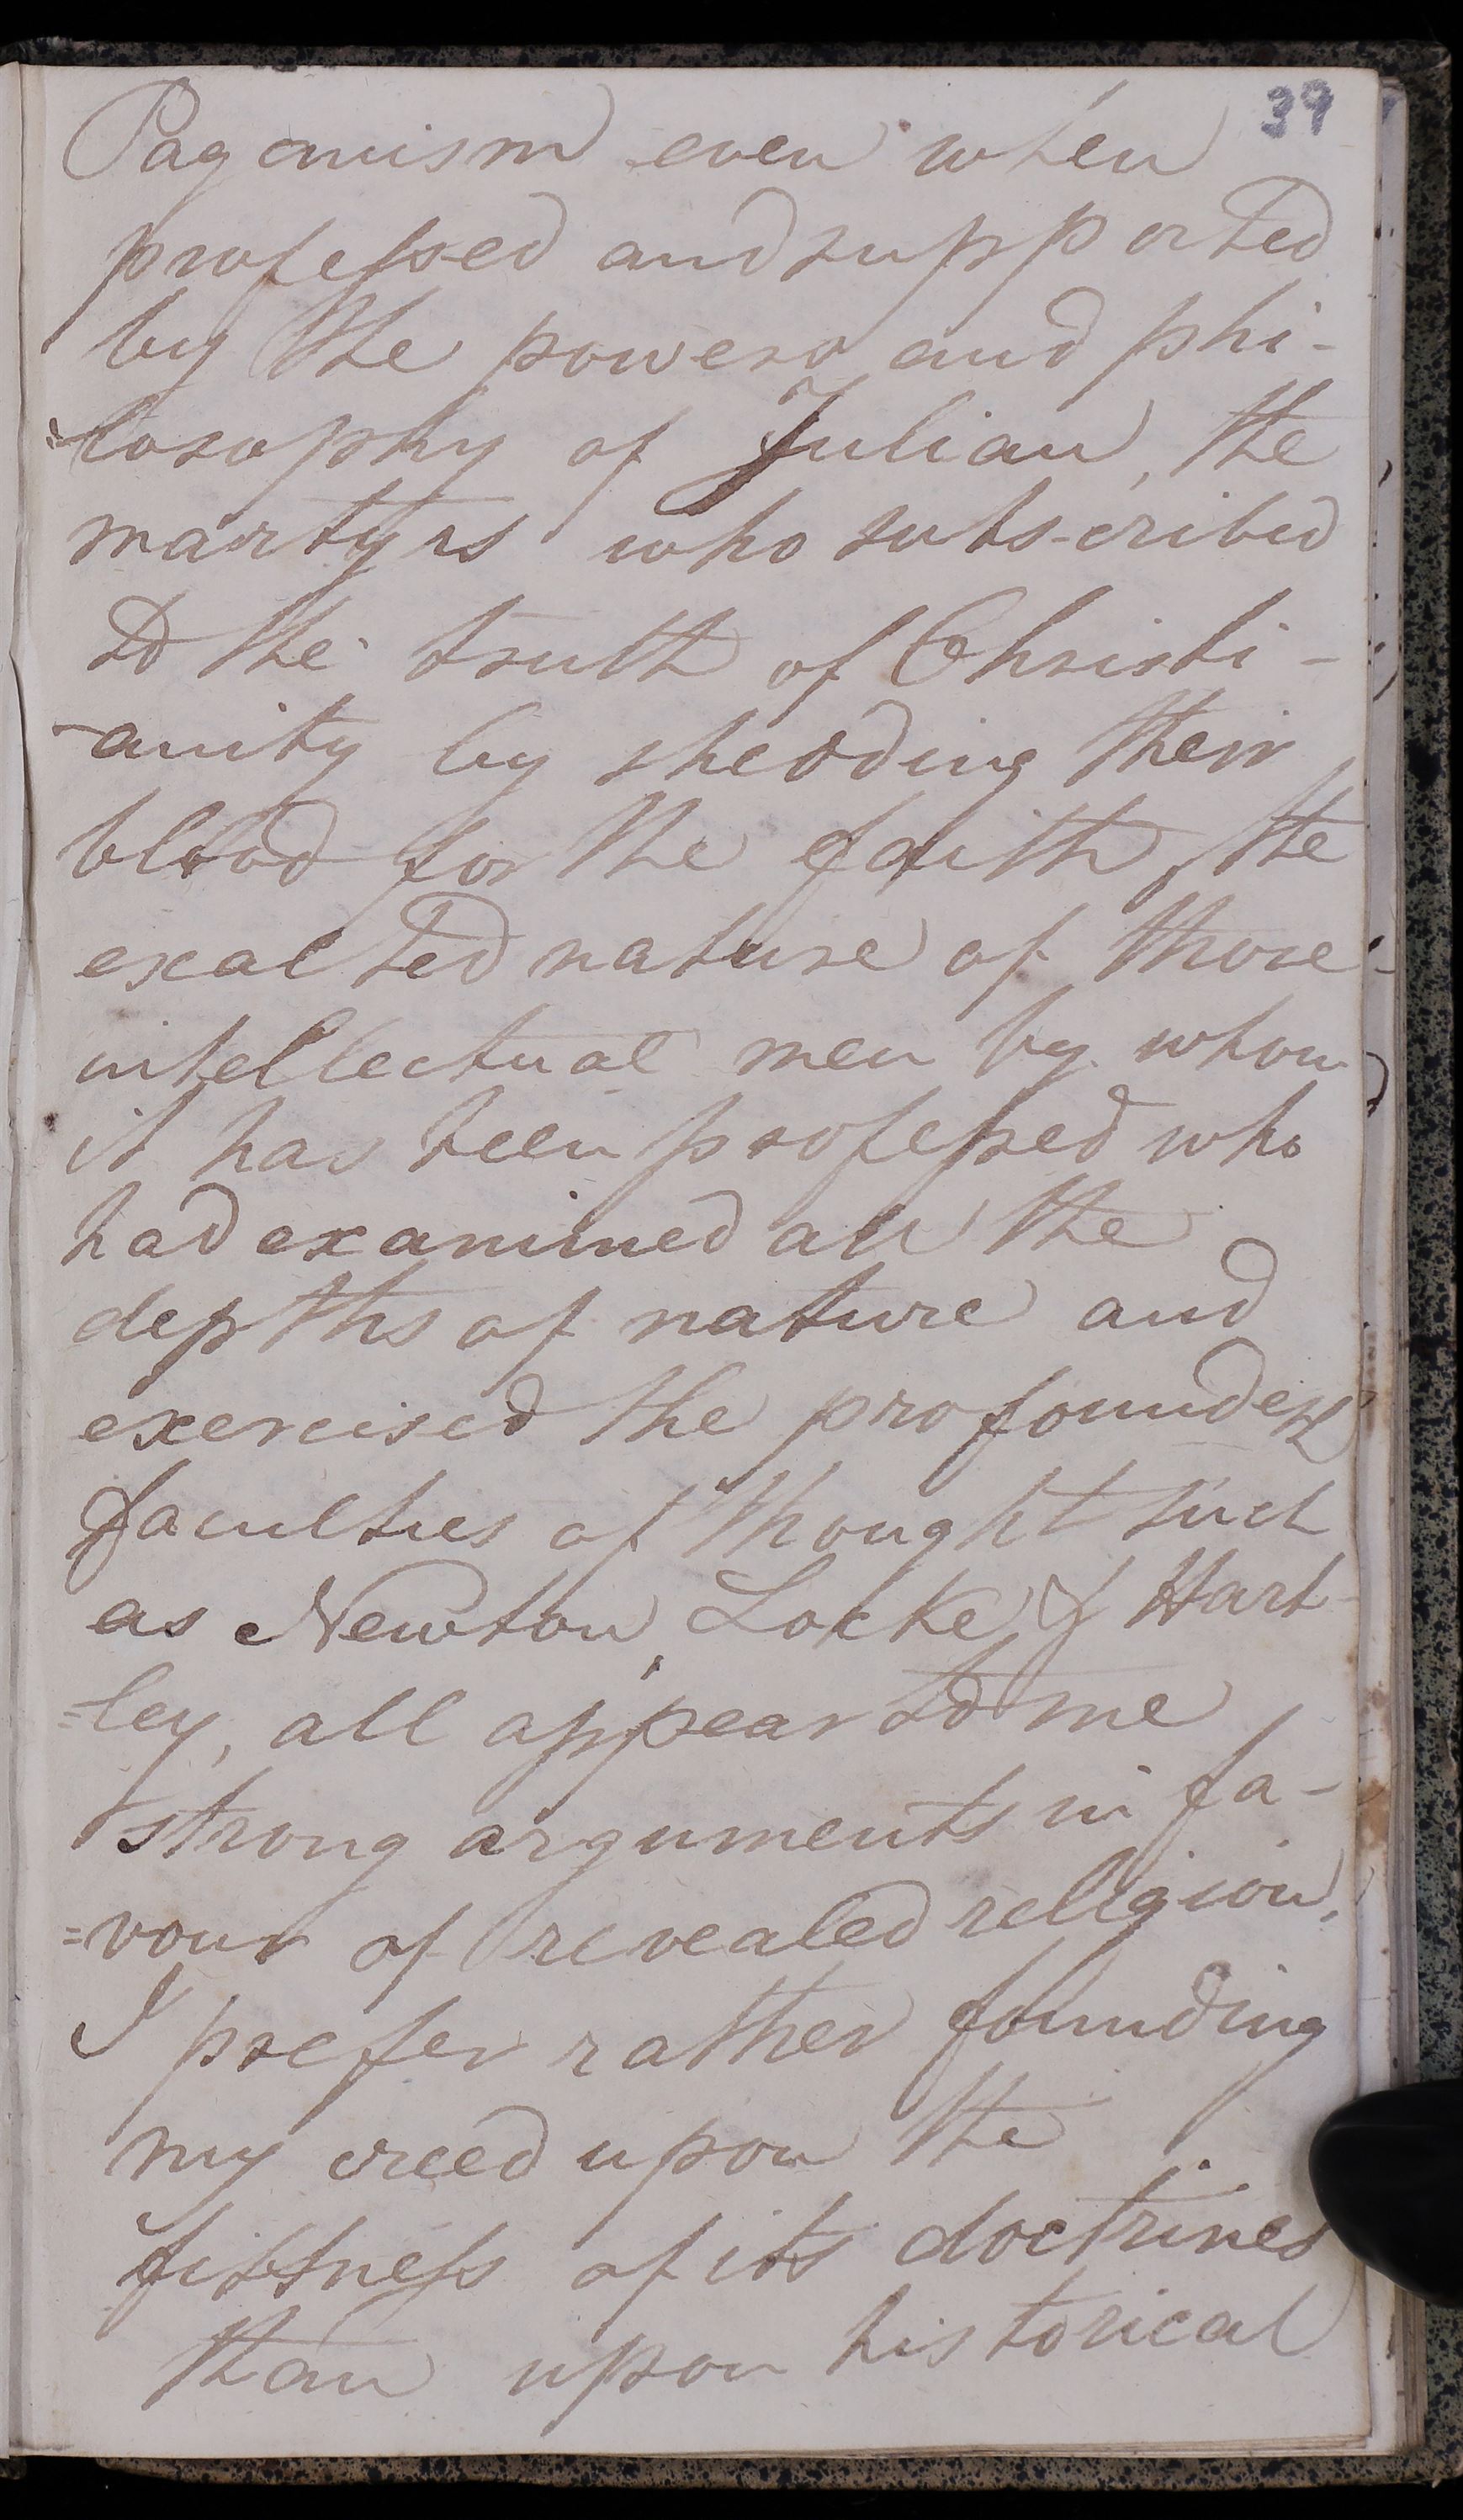 39
Paganism even when
professed and supported
by the powers and phi-
=losophy of Julian, the
martyrs who subscribed
to the truth of Christi-
-anity by shedding their
blood for the faith, the
exalted nature of those
intellectual men by whom
it has been professed who
had examined all the
depths of nature and
exercised the profoundest
faculties of thought such
as Newton, Locke, & Hart-
=ley, all appear to me
strong arguments in fa-
=vour of revealed religion,
I prefer rather founding
my creed upon the
fittness of its doctrines
than upon historical